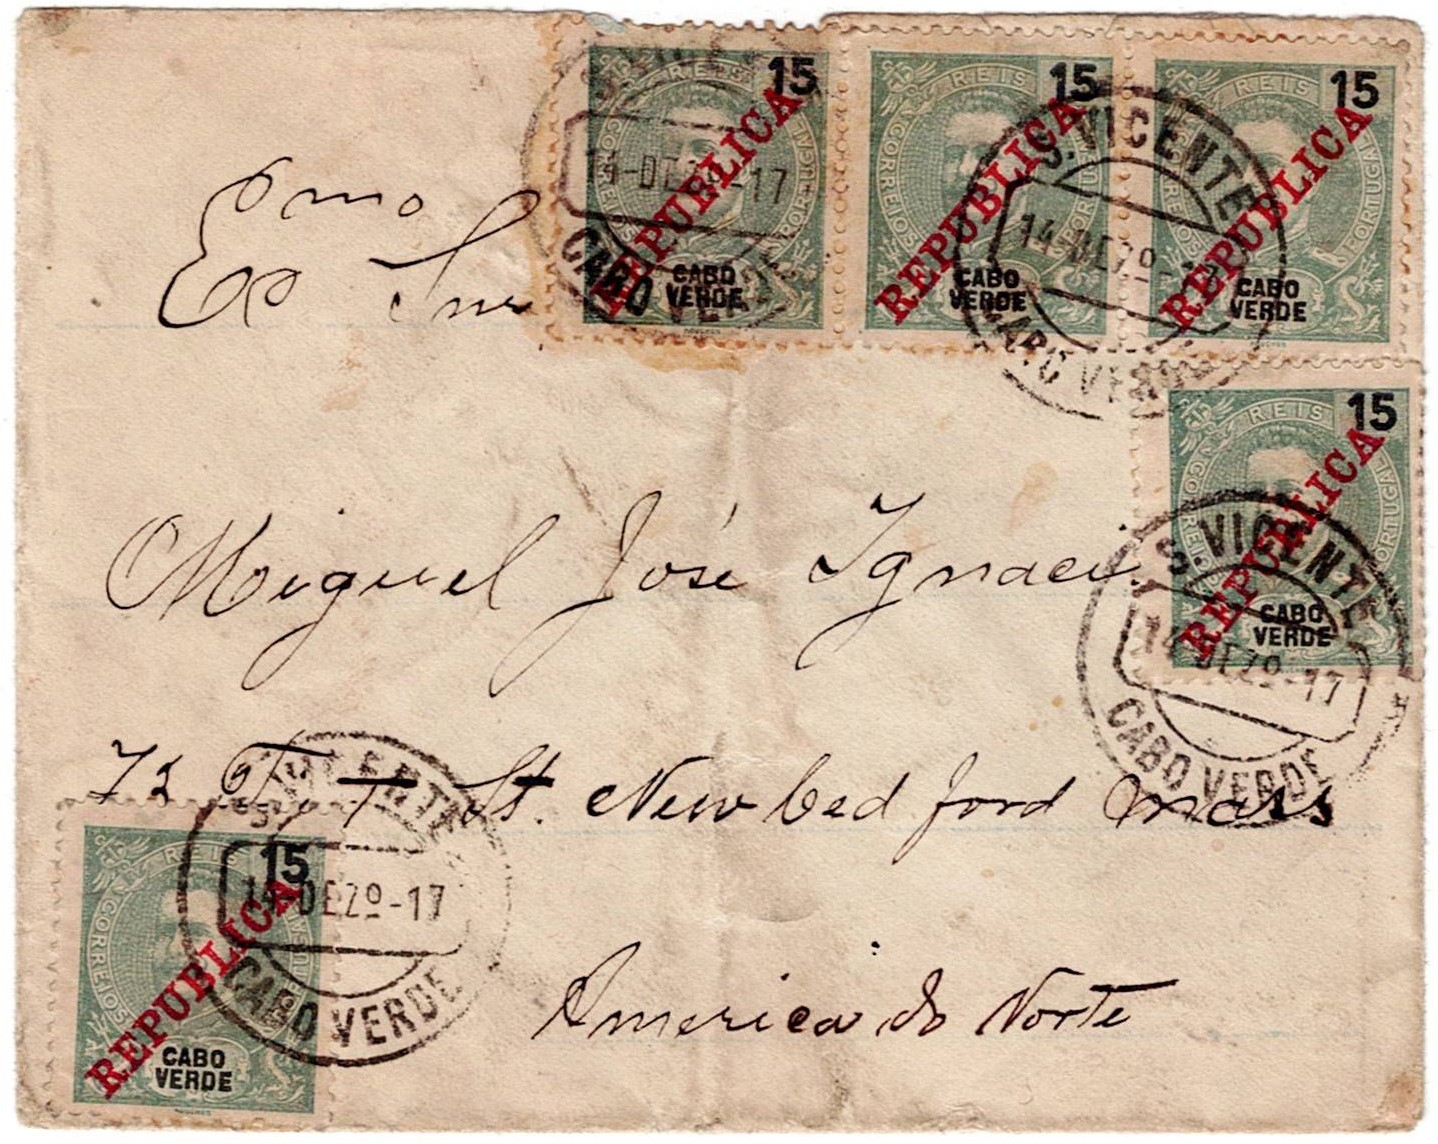 REIS 15
CORREIOS PORTUGAL
REPUBLICA
CABO
VERDE
REIS 15
CORREIOS PORTUGAL
REPUBLICA
CABO
VERDE
REIS 15
CORREIOS PORTUGAL
REPUBLICA
CABO
VERDE
S. VICENTE
14-DEZº-17
CABO VERDE
S. VICENTE
14-DEZº-17
CABO VERDE
Exmo Snr
REIS 15
CORREIOS PORTUGAL
REPUBLICA
CABO
VERDE
S. VICENTE
14-DEZº-17
CABO VERDE
Miguel José Ignaci
St. New bed ford mass
REIS 15
CORREIOS PORTUGAL
REPUBLICA
CABO
VERDE
S. VICENTE
14-DEZº-17
CABO VERDE
America do Norte